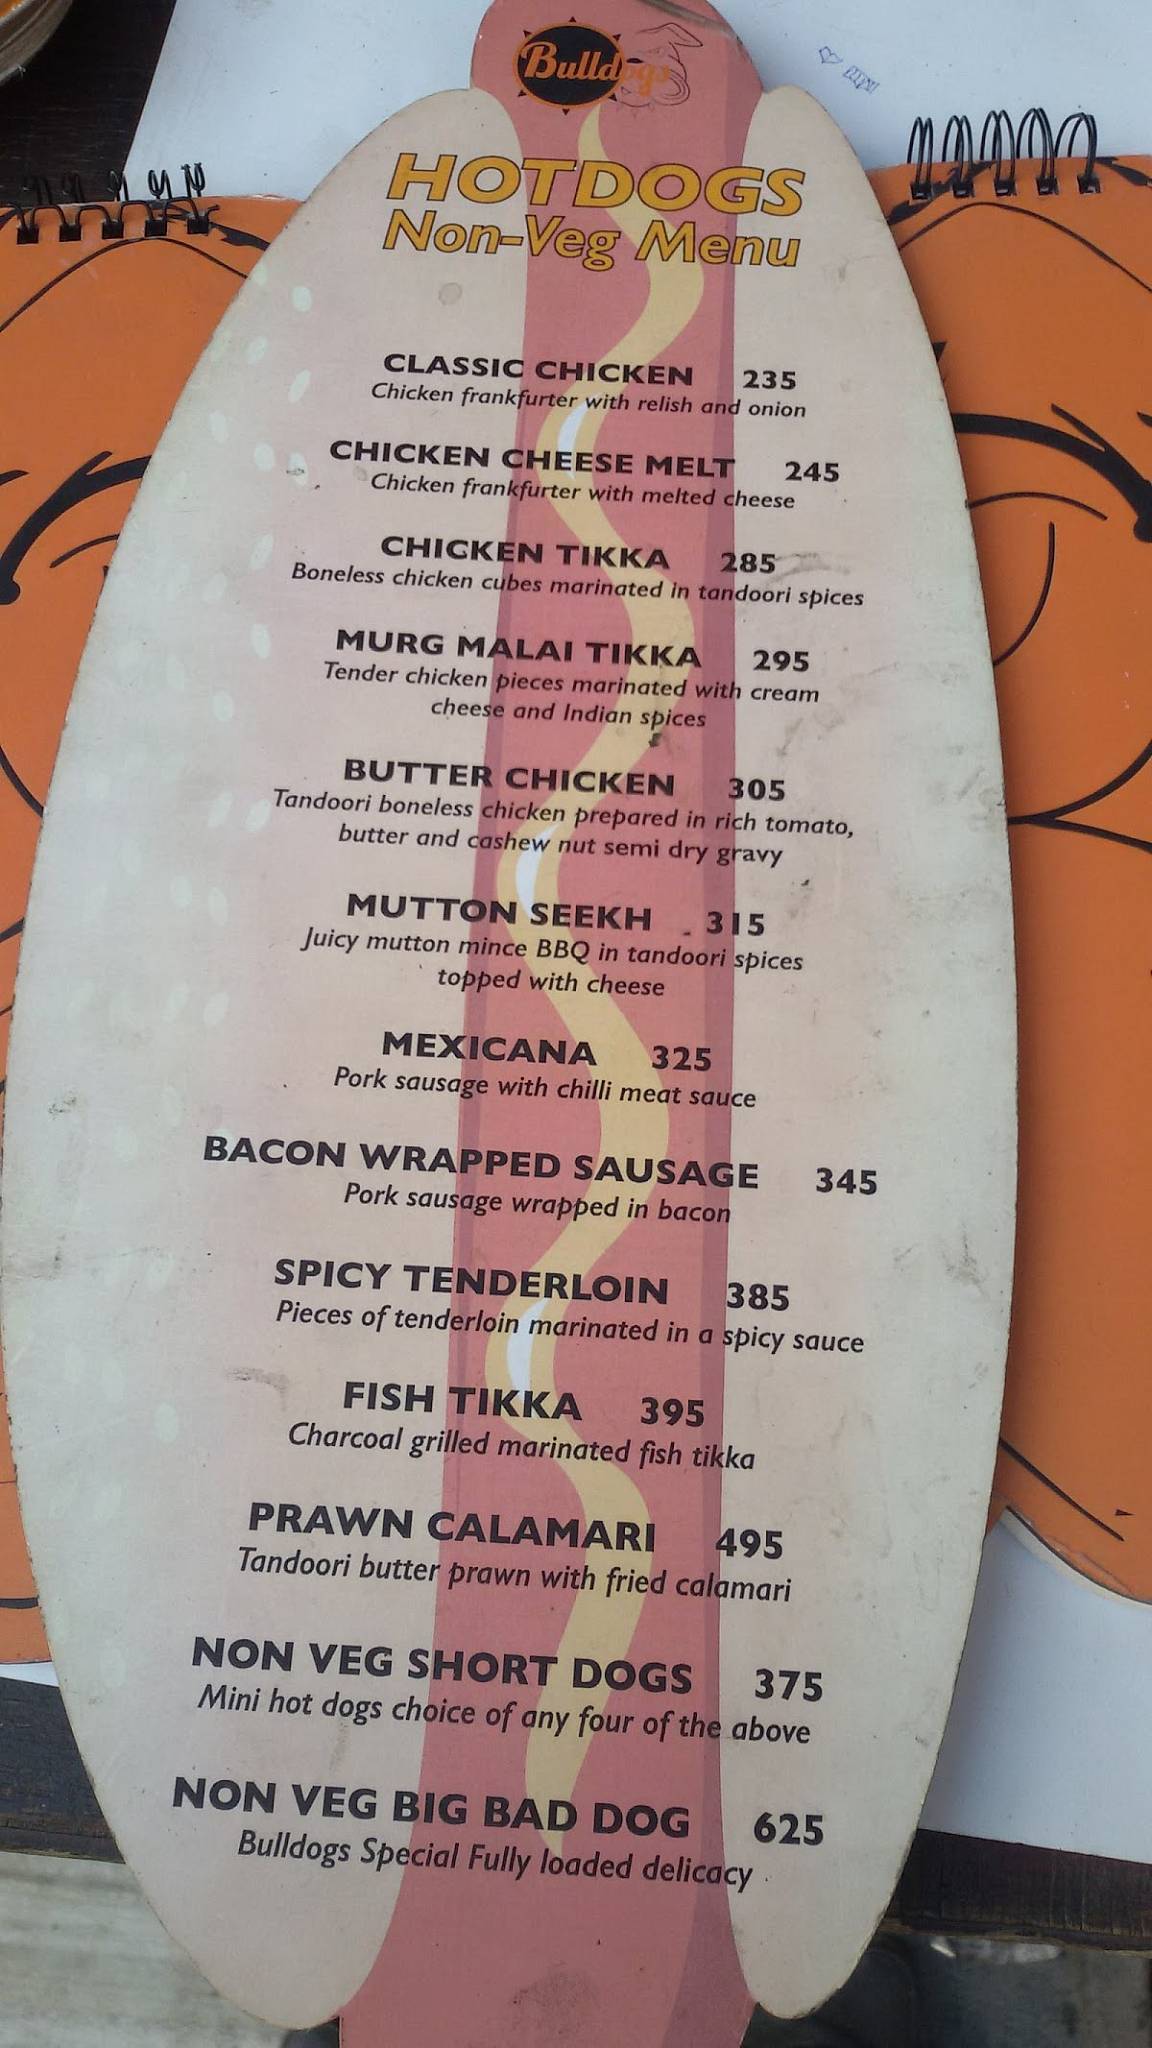 Bulldogs
HOTDOGS
Non-Veg Menu
CLASSIC CHICKEN 235
Chicken frankfurter with relish and onion
CHICKEN CHEESE MELT 245
Chicken frankfurter with melted cheese
CHICKEN TIKKA 285
Boneless chicken cubes marinated in tandoori spices
MURG MALAI TIKKA 295
Tender chicken pieces marinated with cream
cheese and Indian spices
BUTTER CHICKEN 305
Tandoori boneless chicken prepared in rich tomato,
butter and cashew nut semi dry gravy
MUTTON SEEKH 315
Juicy mutton mince BBQ in tandoori spices
topped with cheese
MEXICANA 325
Pork sausage with chilli meat sauce
BACON WRAPPED SAUSAGE 345
Pork sausage wrapped in bacon
SPICY TENDERLOIN 385
Pieces of tenderloin marinated in a spicy sauce
FISH TIKKA 395
Charcoal grilled marinated fish tikka
PRAWN CALAMARI 495
Tandoori butter prawn with fried calamari
NON VEG SHORT DOGS 375
Mini hot dogs choice of any four of the above
NON VEG BIG BAD DOG 625
Bulldogs Special Fully loaded delicacy